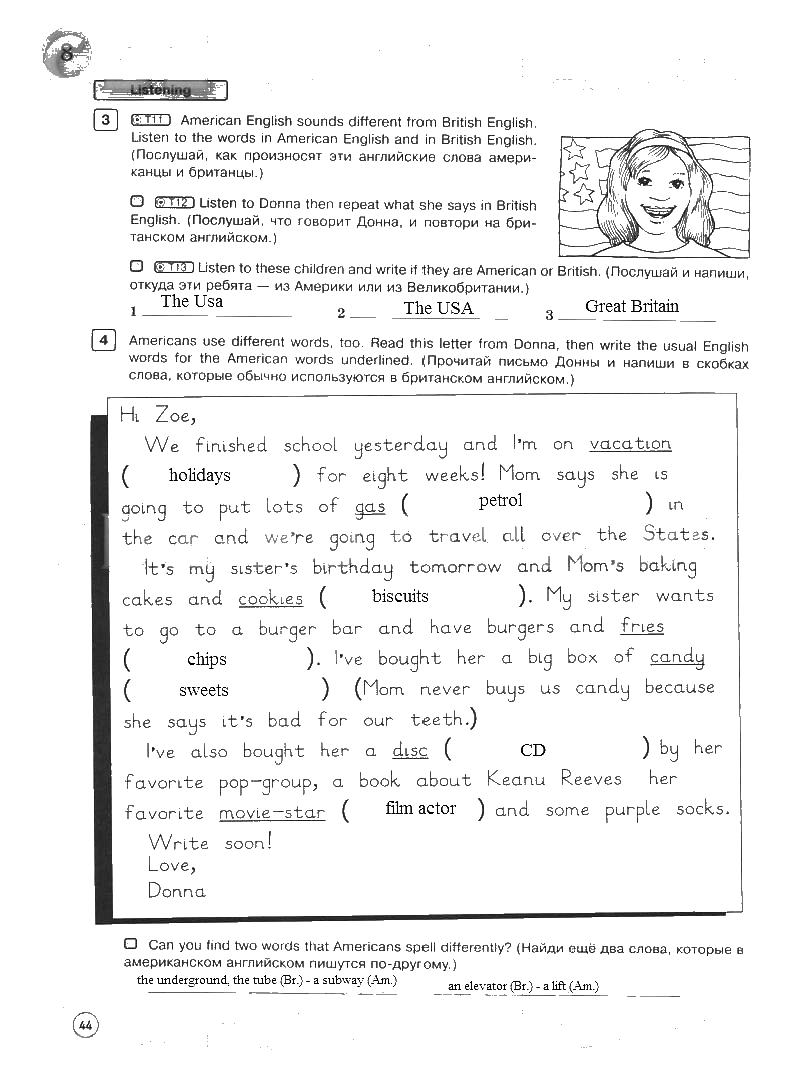 8
Listening
3 T11 American English sounds different from British English.
Listen to the words in American English and in British English.
(Послушай, как произносят эти английские слова амери-
канцы и британцы.)
T12 Listen to Donna then repeat what she says in British
English. (Послушай, что говорит Донна, и повтори на бри-
танском английском.)
T13 Listen to these children and write if they are American or British. (Послушай и напиши,
откуда эти ребята — из Америки или из Великобритании.)
1 The Usa 2 The USA 3 Great Britain
4 Americans use different words, too. Read this letter from Donna, then write the usual English
words for the American words underlined. (Прочитай письмо Донны и напиши в скобках
слова, которые обычно используются в британском английском.)
Hi Zoe,
We finished school yesterday and I'm on vacation
( holidays ) for eight weeks! Mom says she is
going to put lots of gas ( petrol ) in
the car and we're going to travel all over the States.
It's my sister's birthday tomorrow and Mom's baking
cakes and cookies ( biscuits ). My sister wants
to go to a burger bar and have burgers and fries
( chips ). I've bought her a big box of candy
( sweets ) (Mom never buys us candy because
she says it's bad for our teeth.)
I've also bought her a disc ( CD ) by her
favorite pop-group, a book about Keanu Reeves her
favorite movie-star ( film actor ) and some purple socks.
Write soon!
Love,
Donna
Can you find two words that Americans spell differently? (Найди ещё два слова, которые в
американском английском пишутся по-другому.)
the underground, the tube (Br.) - a subway (Am.) an elevator (Br.) - a lift (Am.)
44